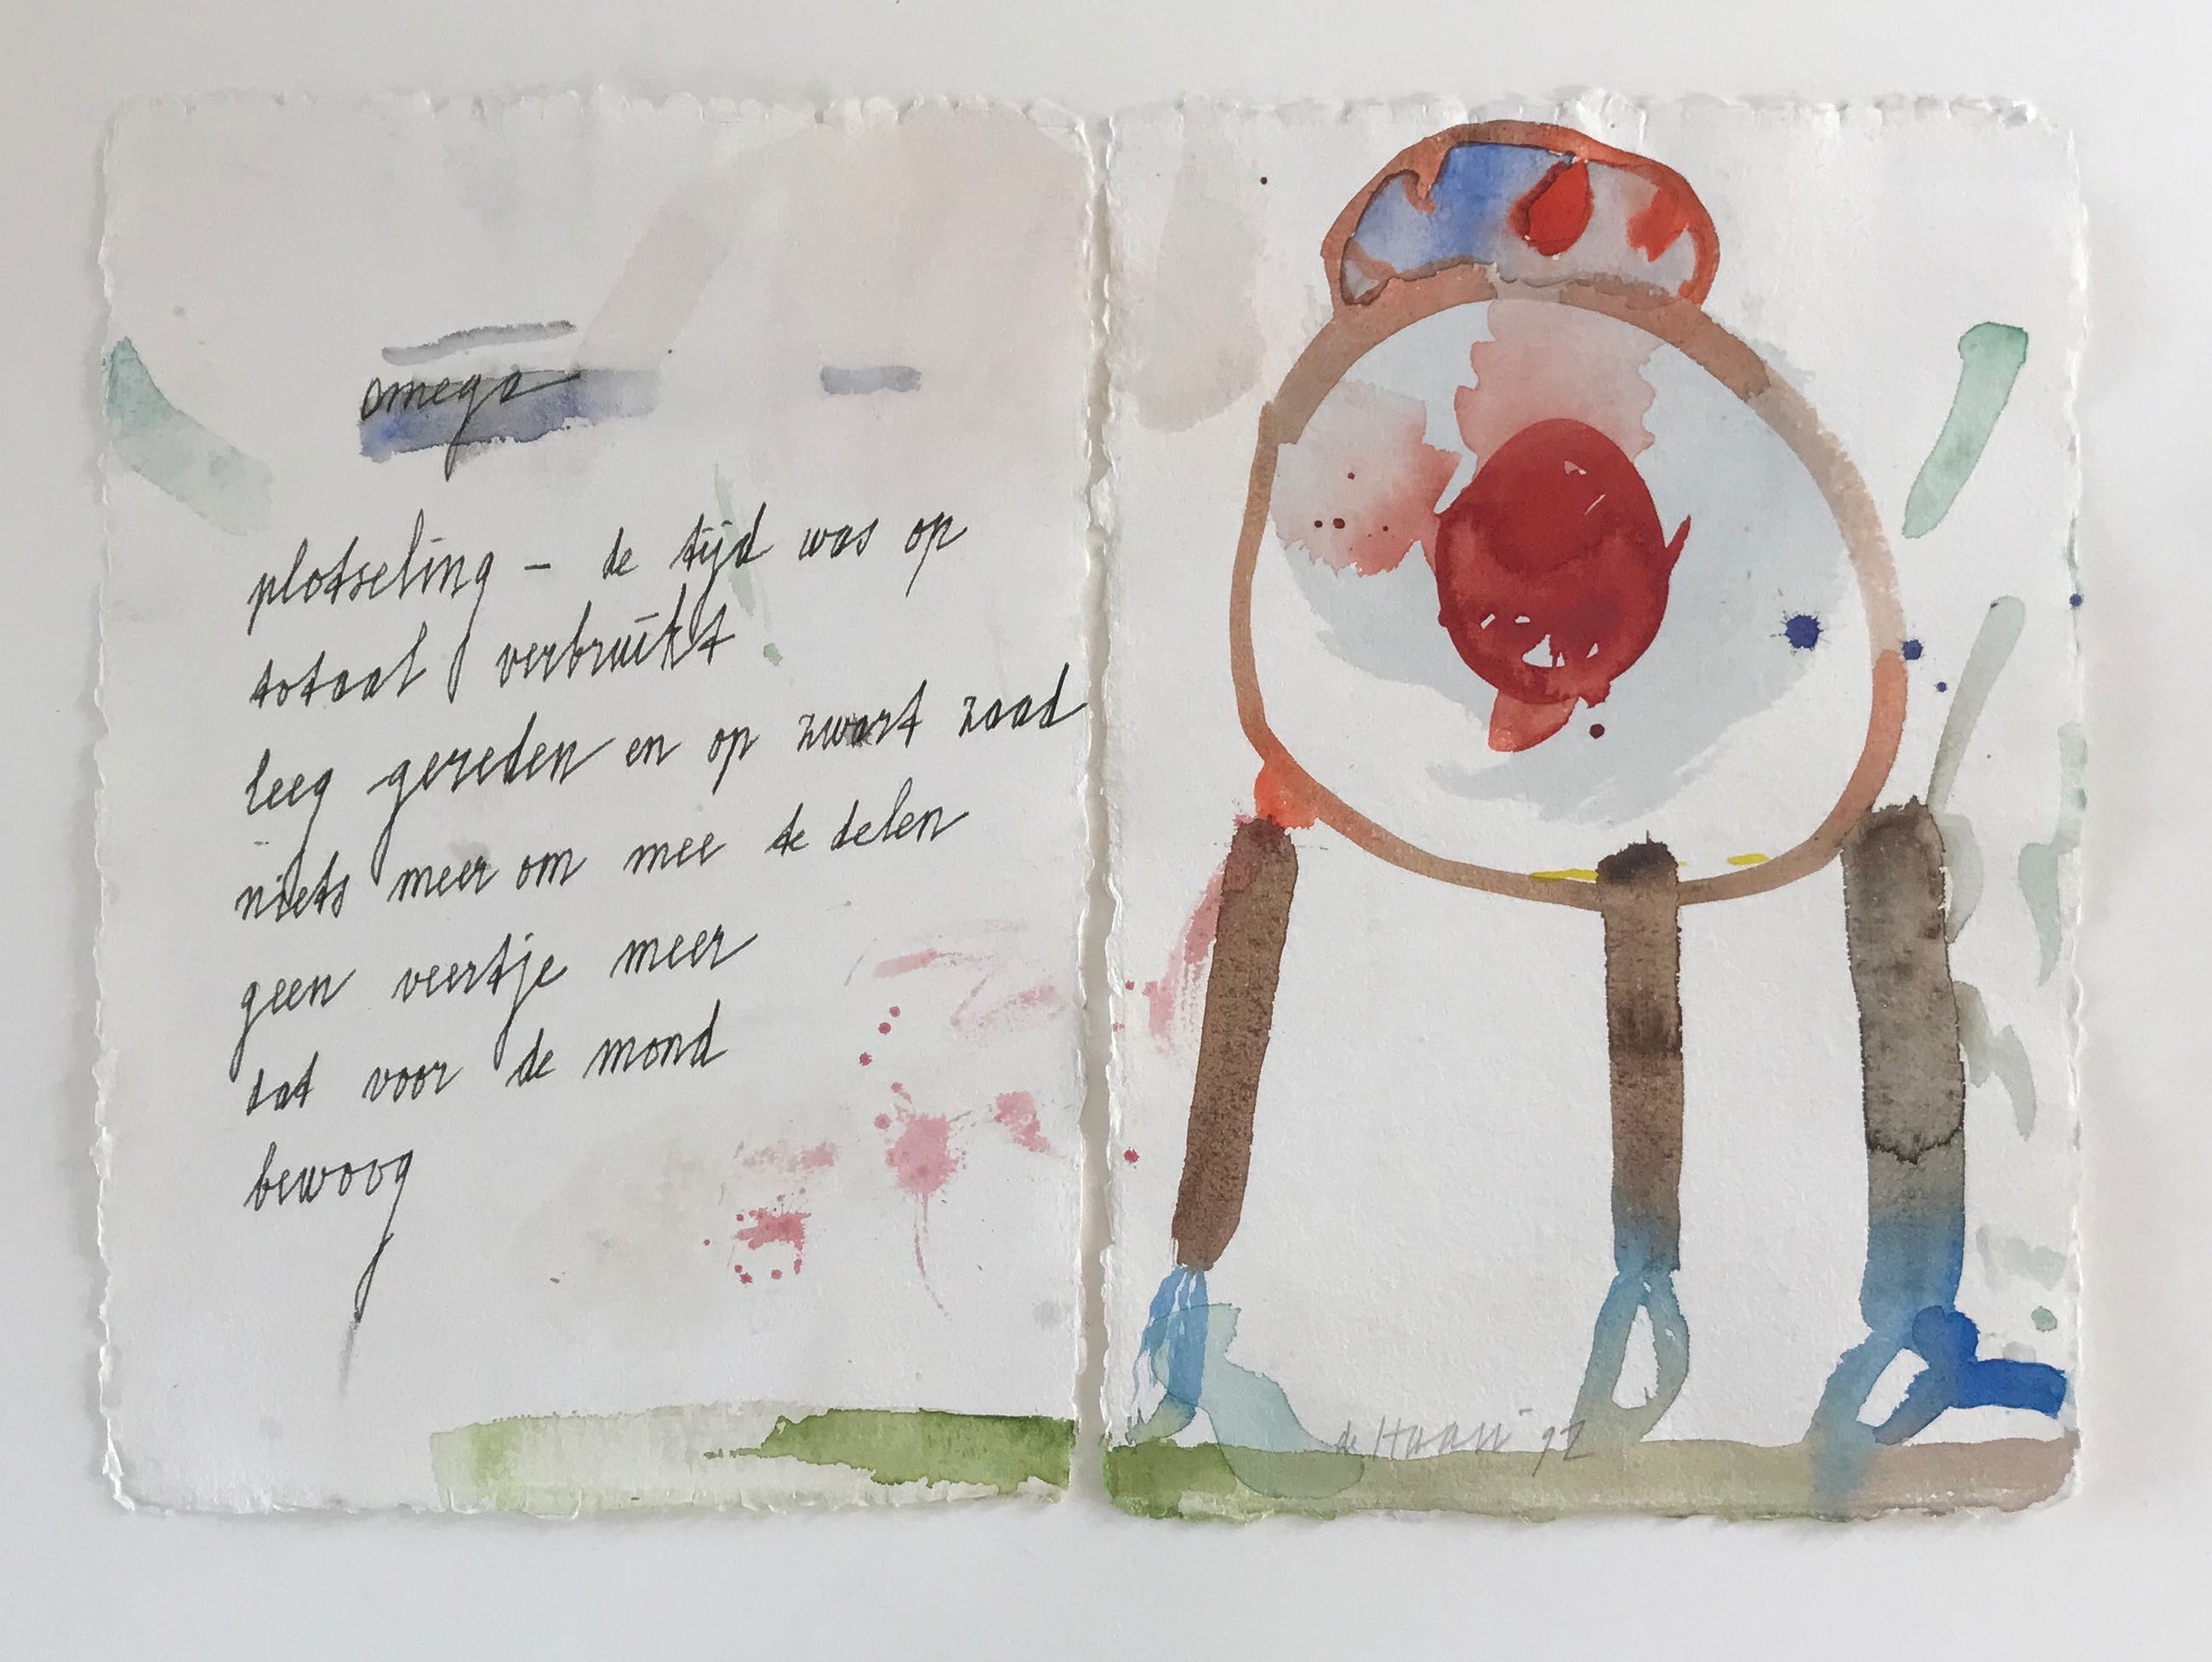 omega
plotseling – de tijd was op
totaal verbruikt
leeg gereden en op zwart zaad
niets meer om mee te delen
geen veertje meer
dat voor de mond
bewoog
de Haan '92